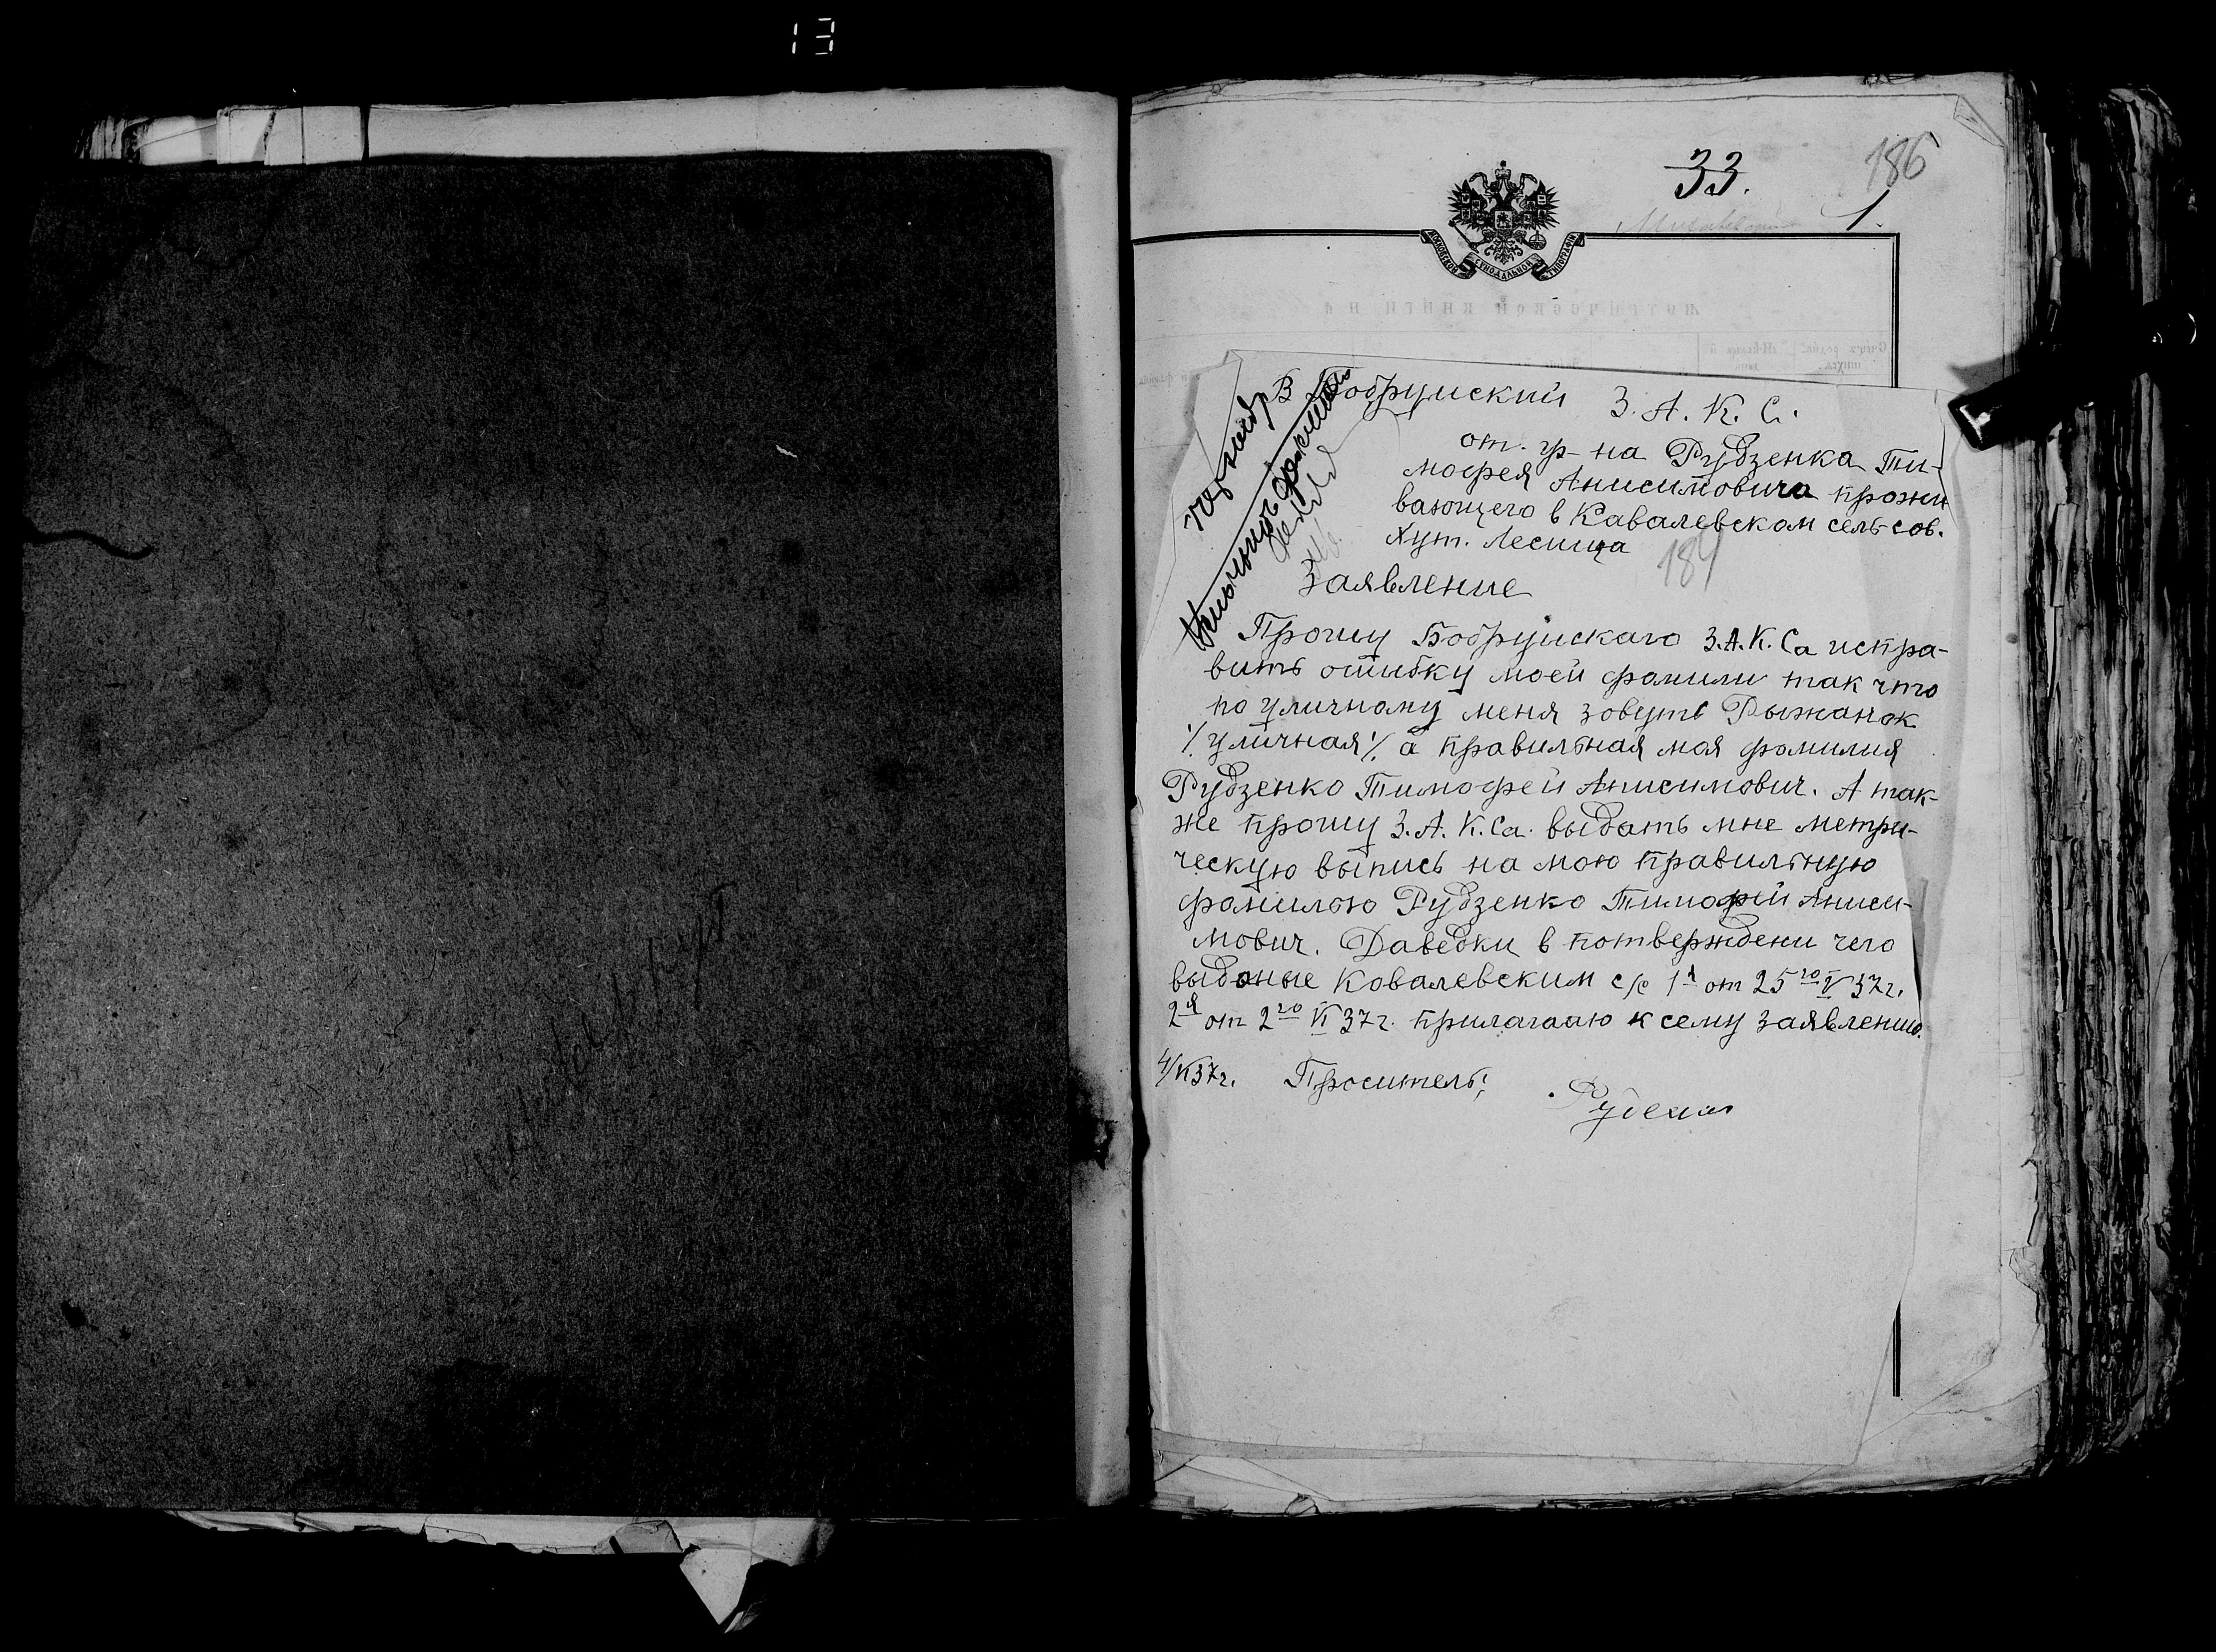 13
33.
186
1.
МОСКОВСКОЙ СИНОДАЛЬНОЙ ТИПОГРАФІИ
В Бобруйский З. А. К. С.
от. гр-на Рудзенка Ти-
мофея Анисимовича прожи
вающего в Кавалевском сель-сов.
Хут. Лесища
184
Заявление
Прошу Бобруйскаго З.А.К.Са испра-
вить ошибку моей фомили так что
по уличному меня зовуть Рыжанок
/уличная/ а правильная моя фомилия
Рудзенко Тимофей Анисимович. А так-
же прошу З.А.К.Са. выдать мне метри-
ческую выпись на мою правильную
фомилью Рудзенко Тимофей Аниси-
мович. Даведки в потверждени чего
выданые Ковалевским с/с 1я от 25го V 37г.
2я от 2го VI 37г. прилагааю к сему заявлению.
4/VI 37г. Проситель: